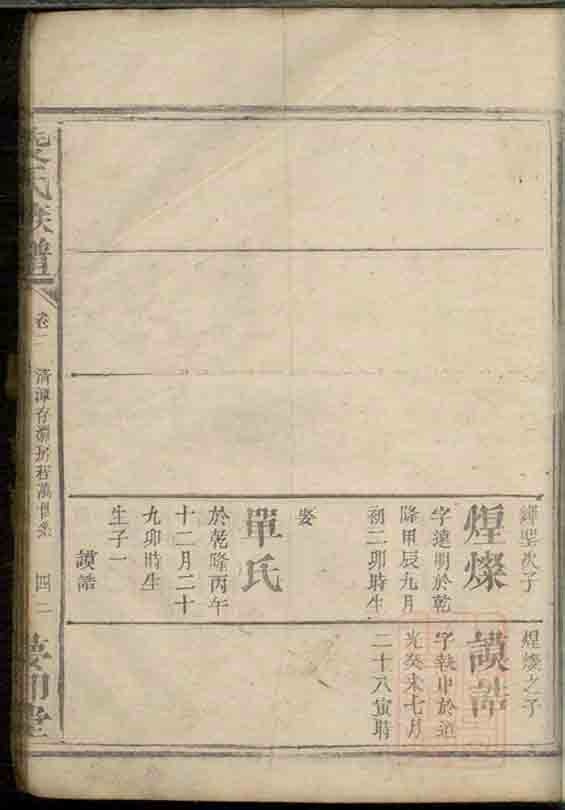 次子
煌燦
字達明於乾
隆甲辰九月
初二卯時生
娶
單氏
於乾隆丙午
十二月二十
九卯時生
生子一
謨誥
煌燦之子
謨誥
字執中於道
光癸未七月
二十八寅時
氏族譜
卷二
清潭存
四二
堂